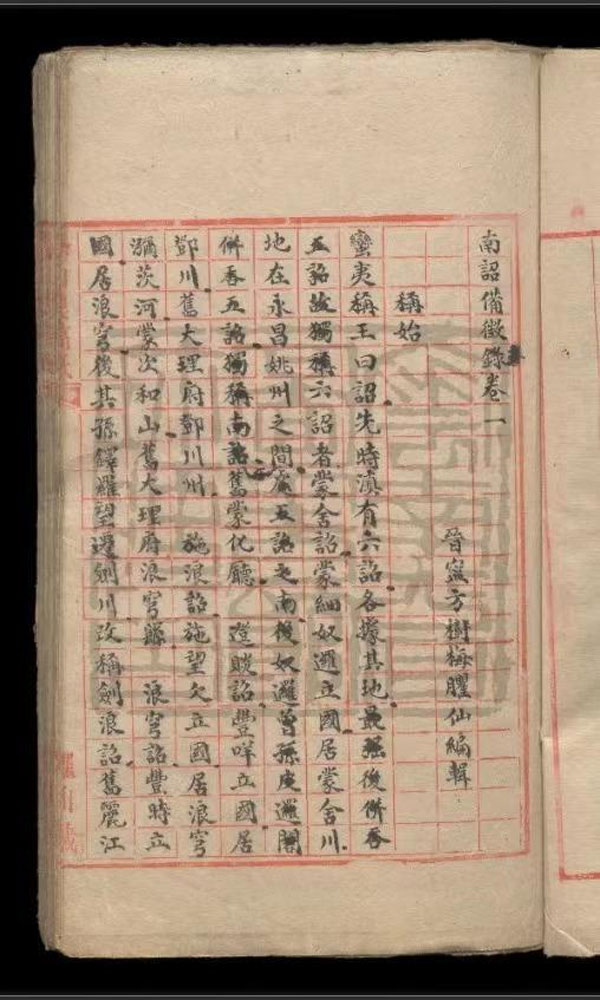 南詔備徵錄卷一
晉寧方樹梅臞仙編輯
稱始
蠻夷稱王曰詔先時滇有六詔各據其地最強後併吞
五詔故獨稱六詔者蒙舍詔蒙細奴邏立國居蒙舍川
地在永昌姚州之間居五詔之南後奴邏曾孫皮邏閣
併吞五詔獨稱南詔舊蒙化廳 邆賧詔豐咩立國居
鄧川舊大理府鄧川州 施浪詔施望欠立國居浪穹
瀰茨河蒙次和山舊大理府浪穹縣 浪穹詔豐時立
國居浪穹後其孫鐸羅望遷劍川改稱劍浪詔舊麗江